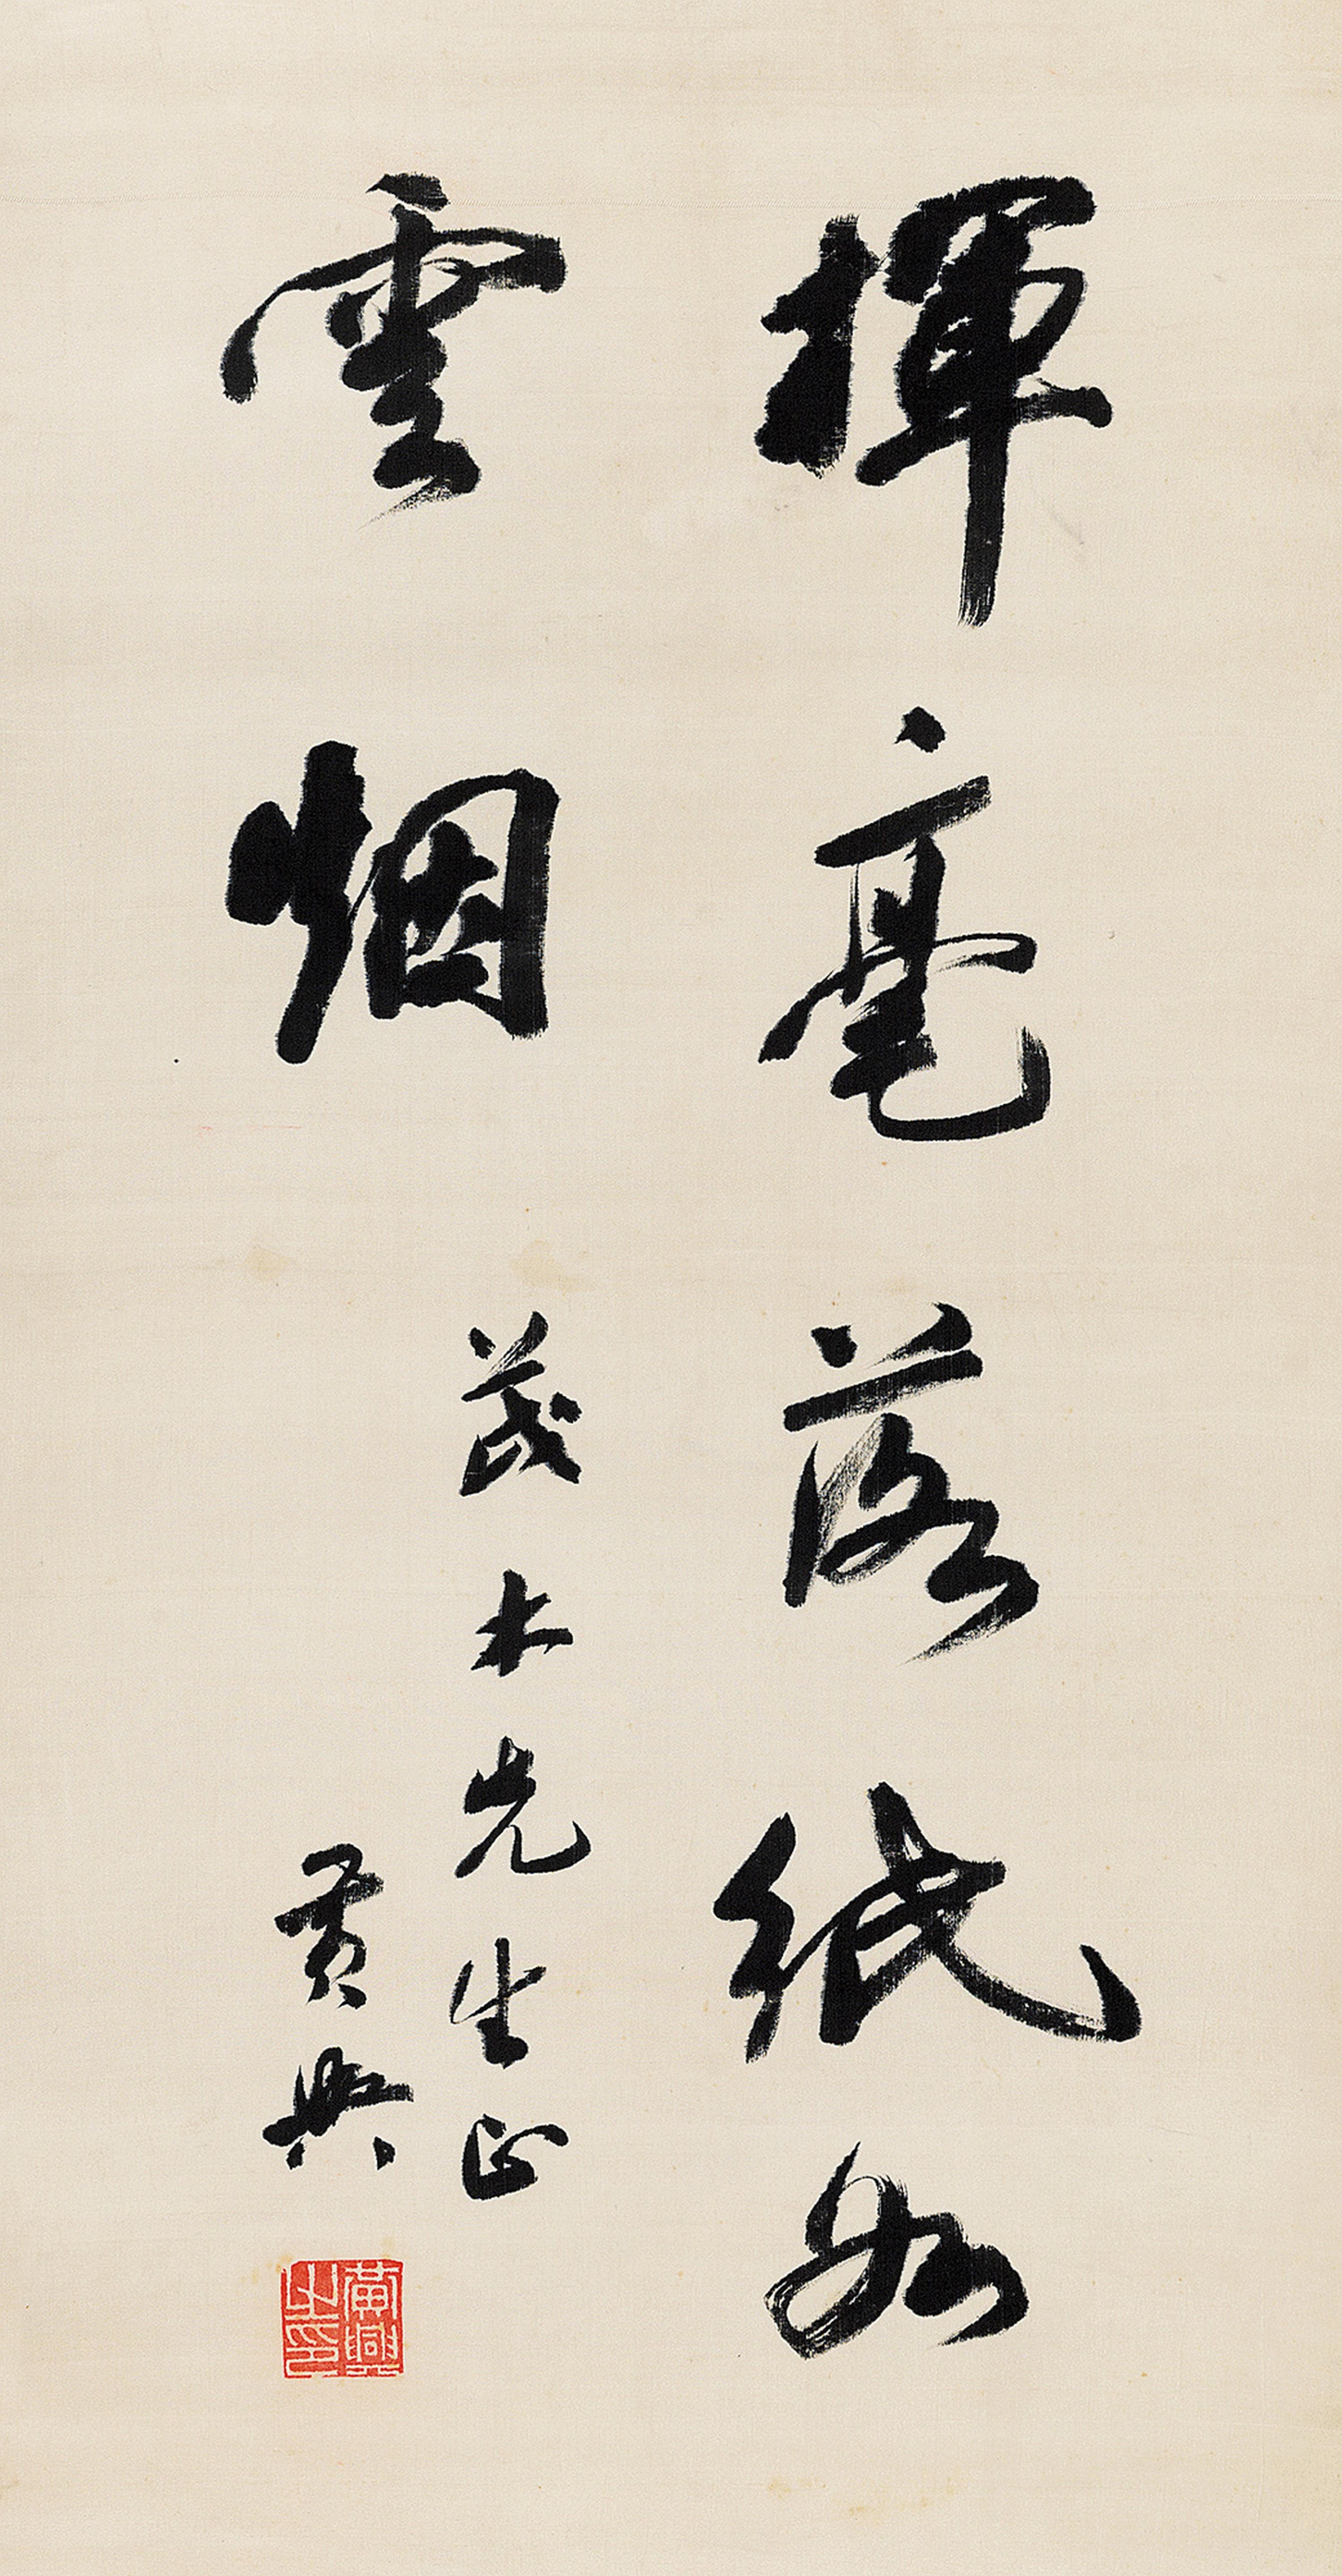 揮毫落紙如
雲烟
茂木先生正
黄興
黄興之印